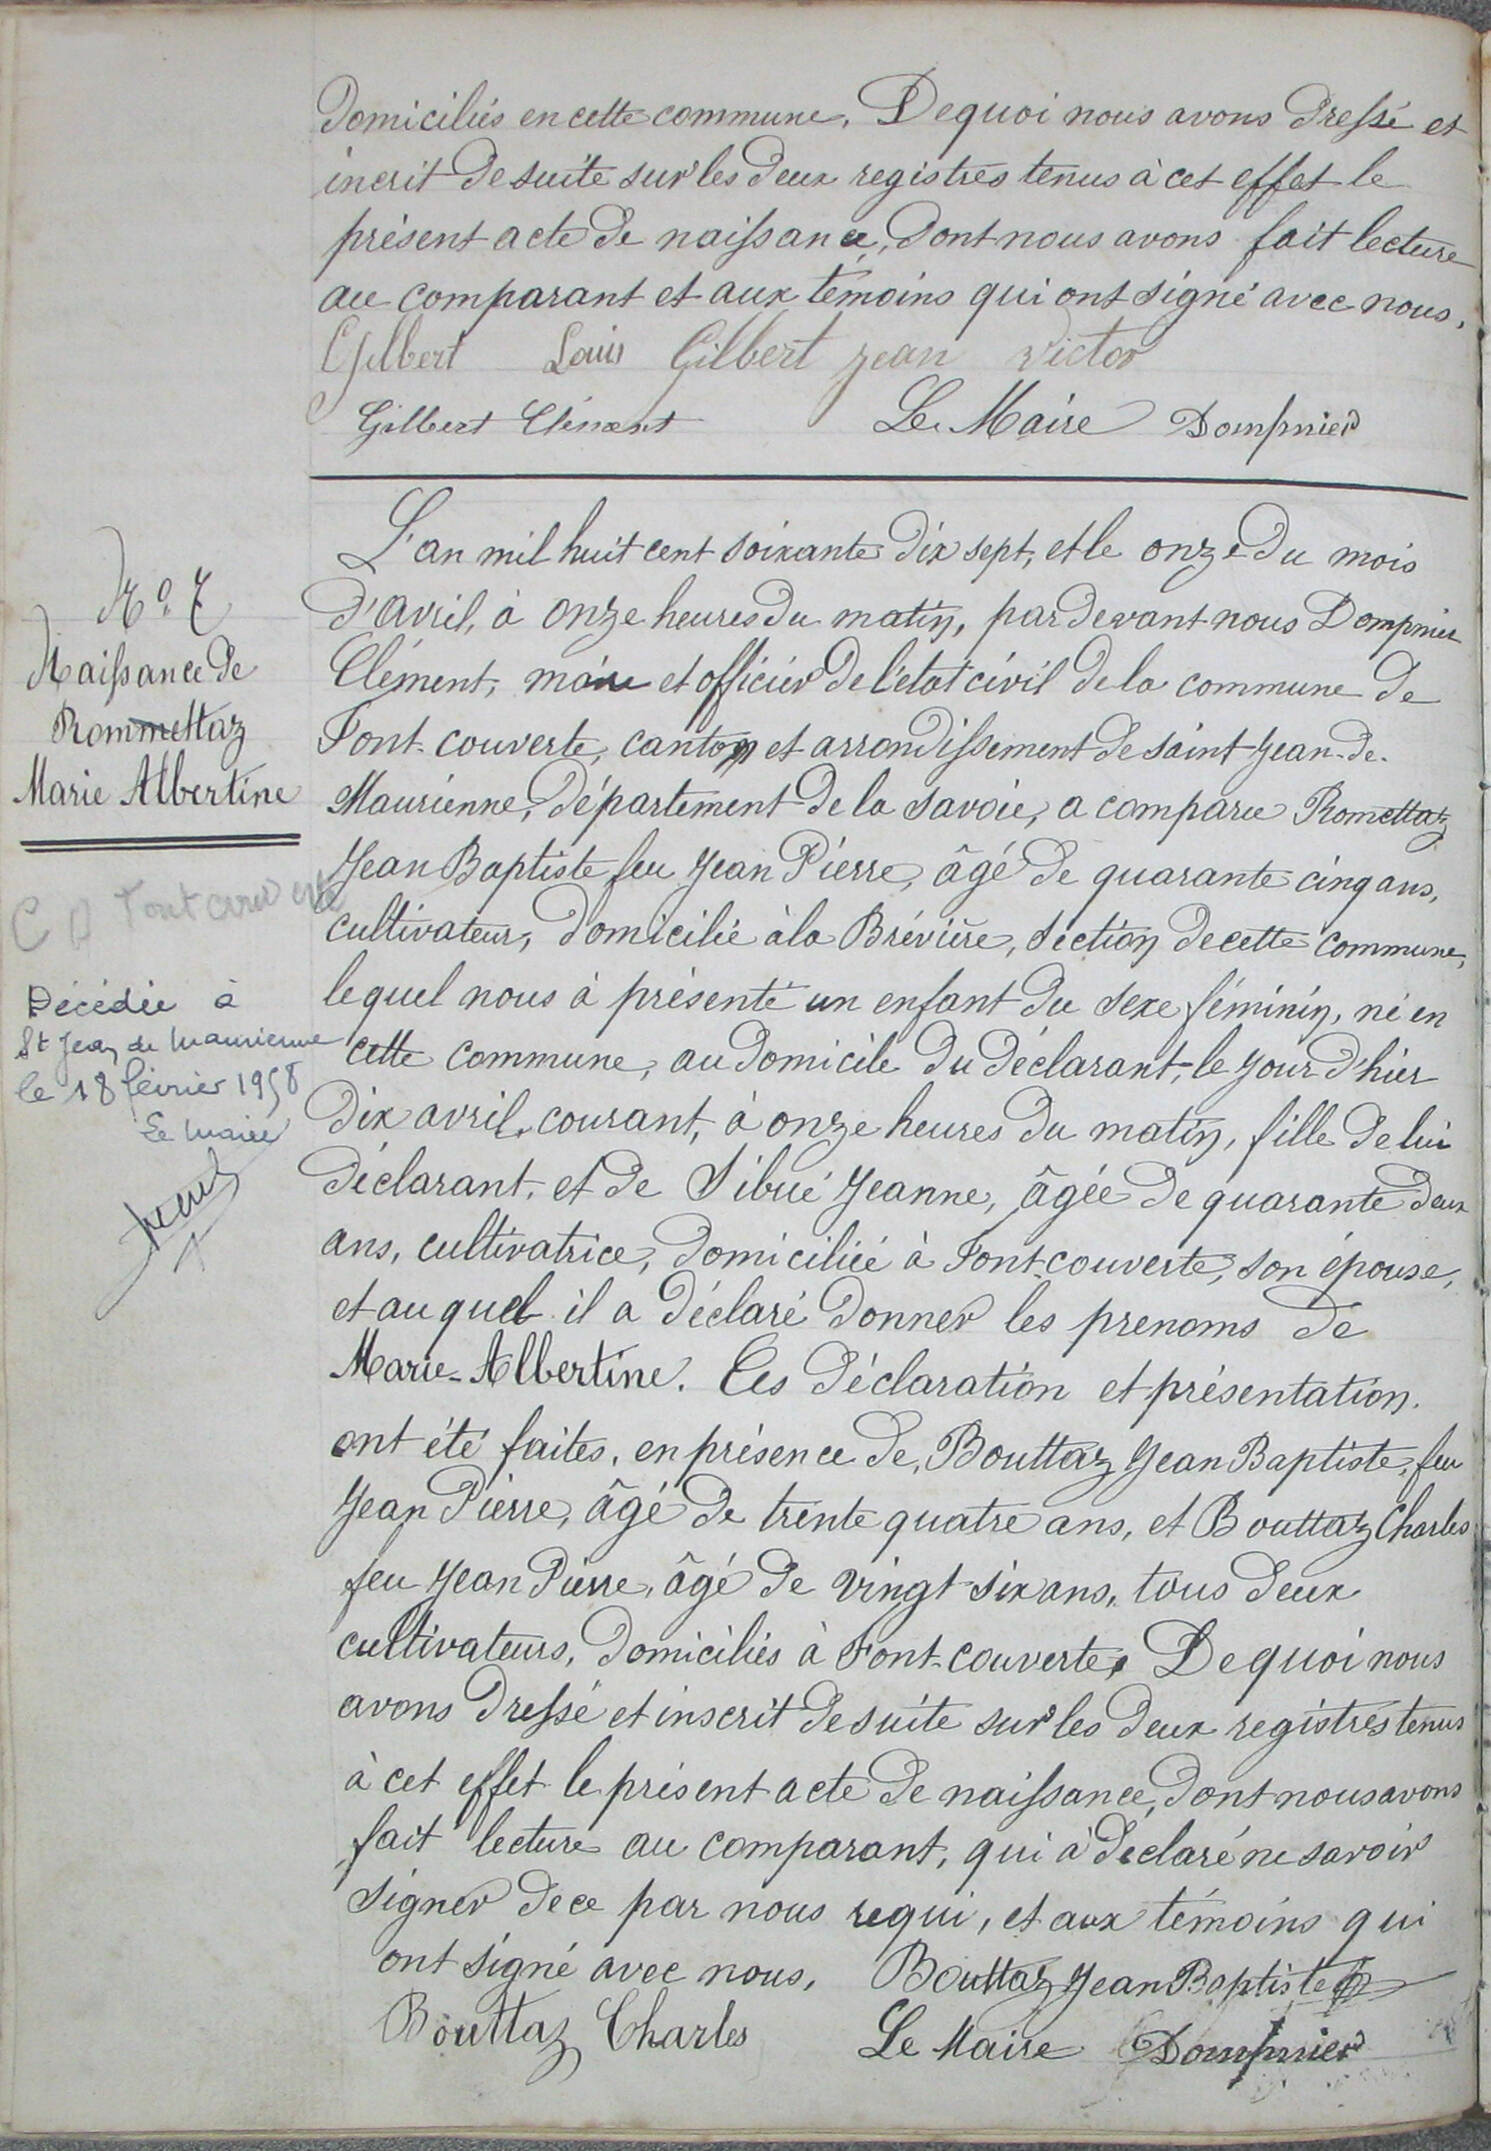 domiciliés en cette commune. De quoi nous avons dressé et
incrit de suite sur les deux registres tenus à cet effet le
présent acte de naissance, dont nous avons fait lecture
au comparant et aux témoins qui ont signé avec nous.
Gilbert Louis Gilbert jean victor
Gilbert Clément Le Maire Dompnier
N° 7
Naissance de
Rommettaz
Marie Albertine
Décédée à
St Jean de Maurienne
le 18 février 1958
Le Maire
L'an mil huit cent soixante dix sept, et le onze du mois
d'avril, à onze heures du matin, par devant nous Dompnier
Clément, maire et officier de l'état civil de la commune de
Font-couverte, canton et arrondissement de saint-jean-de-
Maurienne, département de la Savoie, a comparu Romettaz
Jean Baptiste feu Jean Pierre, âgé de quarante cinq ans,
cultivateur, domicilié à la Brévière, section de cette commune,
lequel nous à présenté un enfant du sexe féminin, né en
cette commune, au domicile du déclarant, le jour d'hier
dix avril, courant, à onze heures du matin, fille de lui
déclarant, et de Sibué Jeanne, âgée de quarante deux
ans, cultivatrice, domiciliée à Font-couverte, son épouse,
et auquel il a déclaré donner les prenoms de
Marie-Albertine. Ces déclaration et présentation
ont été faites, en présence de, Bouttaz Jean Baptiste, feu
Jean Pierre, âgé de trente quatre ans, et Bouttaz Charles
feu Jean Pierre, âgé de vingt six ans, tous deux
cultivateurs, domiciliés à Font-couverte. De quoi nous
avons dressé et inscrit de suite sur les deux registres tenus
à cet effet le présent acte de naissance, dont nous avons
fait lecture au comparant, qui à déclaré ne savoir
signer de ce par nous requi, et aux témoins qui
ont signé avec nous, Bouttaz Jean Baptiste
Bouttaz Charles Le Maire Dompnier